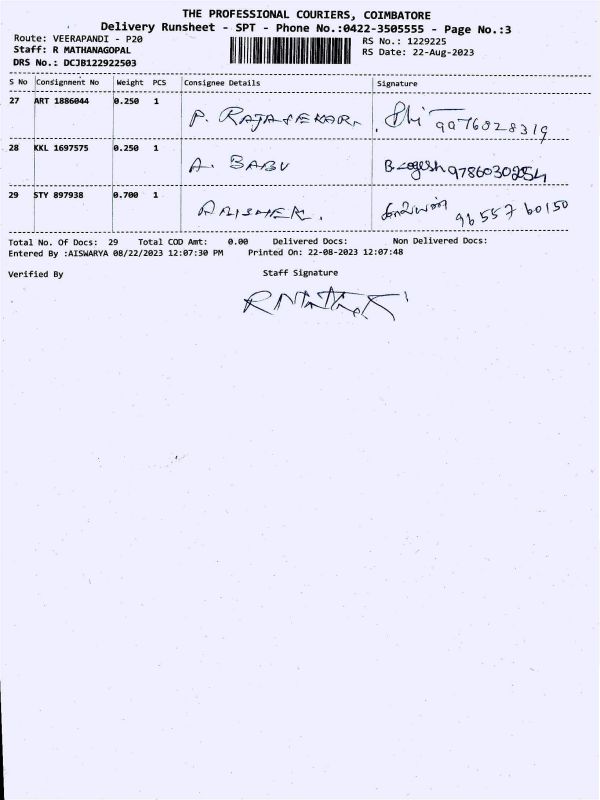 THE PROFESSIONAL COURIERS, COIMBATORE
Delivery Runsheet - SPT - Phone No.:0422-3505555 - Page No.:3
Route: VEERAPANDI - P20
RS No.: 1229225
Staff: R MATHANAGOPAL
RS Date: 22-Aug-2023
DRS No.: DCJB122922503
S No Consignment No Weight PCS Consignee Details Signature
27 ART 1886044 0.250 1 P. RAJASEKAR. 9976028319
28 KKL 1697575 0.250 1 A. BABU 9786030254
29 STY 897938 0.700 1 9655760150
Total No. Of Docs: 29 Total COD Amt: 0.00 Delivered Docs: Non Delivered Docs:
Entered By :AISWARYA 08/22/2023 12:07:30 PM Printed On: 22-08-2023 12:07:48
Verified By Staff Signature